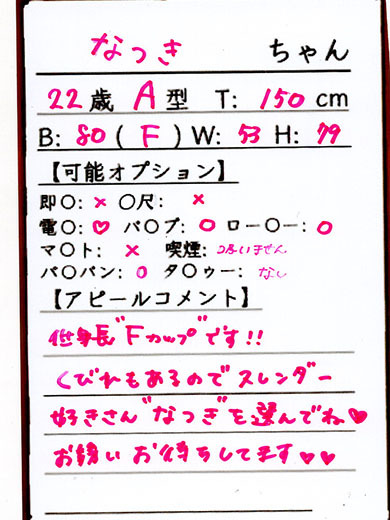 なつき ちゃん
22歳 A型 T: 150cm
B: 80(F)W: 53 H: 79
【可能オプション】
即〇: × 〇尺: ×
電〇: ♡ バ〇ブ: 〇 ロー〇ー: 〇
マ〇ト: × 喫煙: 吸いません
パ〇パン: 〇 タ〇ゥー: なし
【アピールコメント】
低身長"Fカップ"です!!
くびれもあるのでスレンダー
好きさん"なつき"を選んでね♥
お誘いお待ちしてます♥♥